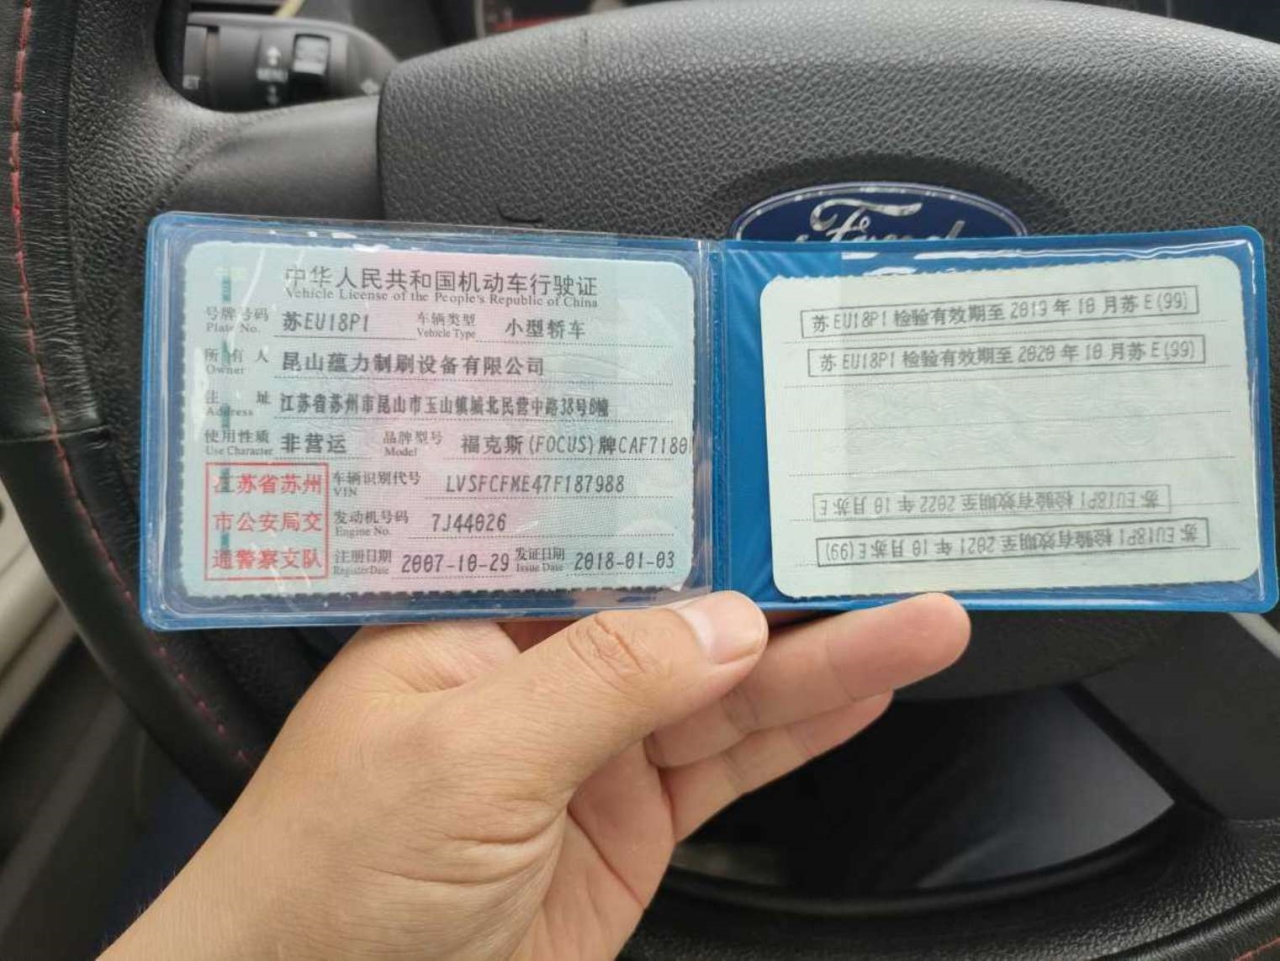 中华人民共和国机动车行驶证
Vehicle License of the People's Republic of China
号牌号码 苏EU18P1 车辆类型 小型轿车
Plate No. Vehicle Type
所有人 昆山蕴力制刷设备有限公司
Owner
住 址 江苏省苏州市昆山市玉山镇城北民营中路38号6幢
Address
使用性质 非营运 品牌型号 福克斯(FOCUS)牌CAF7180
Use Character Model
江苏省苏州
市公安局交
通警察支队
车辆识别代号 LVSFCFME47F187988
VIN
发动机号码 7J44026
Engine No.
注册日期 2007-10-29 发证日期 2018-01-03
Register Date Issue Date
苏EU18P1 检验有效期至 2019 年 10 月苏 E(99)
苏 EU18P1 检验有效期至 2020 年 10 月苏 E(99)
苏EU18P1 检验有效期至 2022 年 10 月苏 E
苏 EU18P1 检验有效期至 2021 年 10 月苏 E(99)
Ford